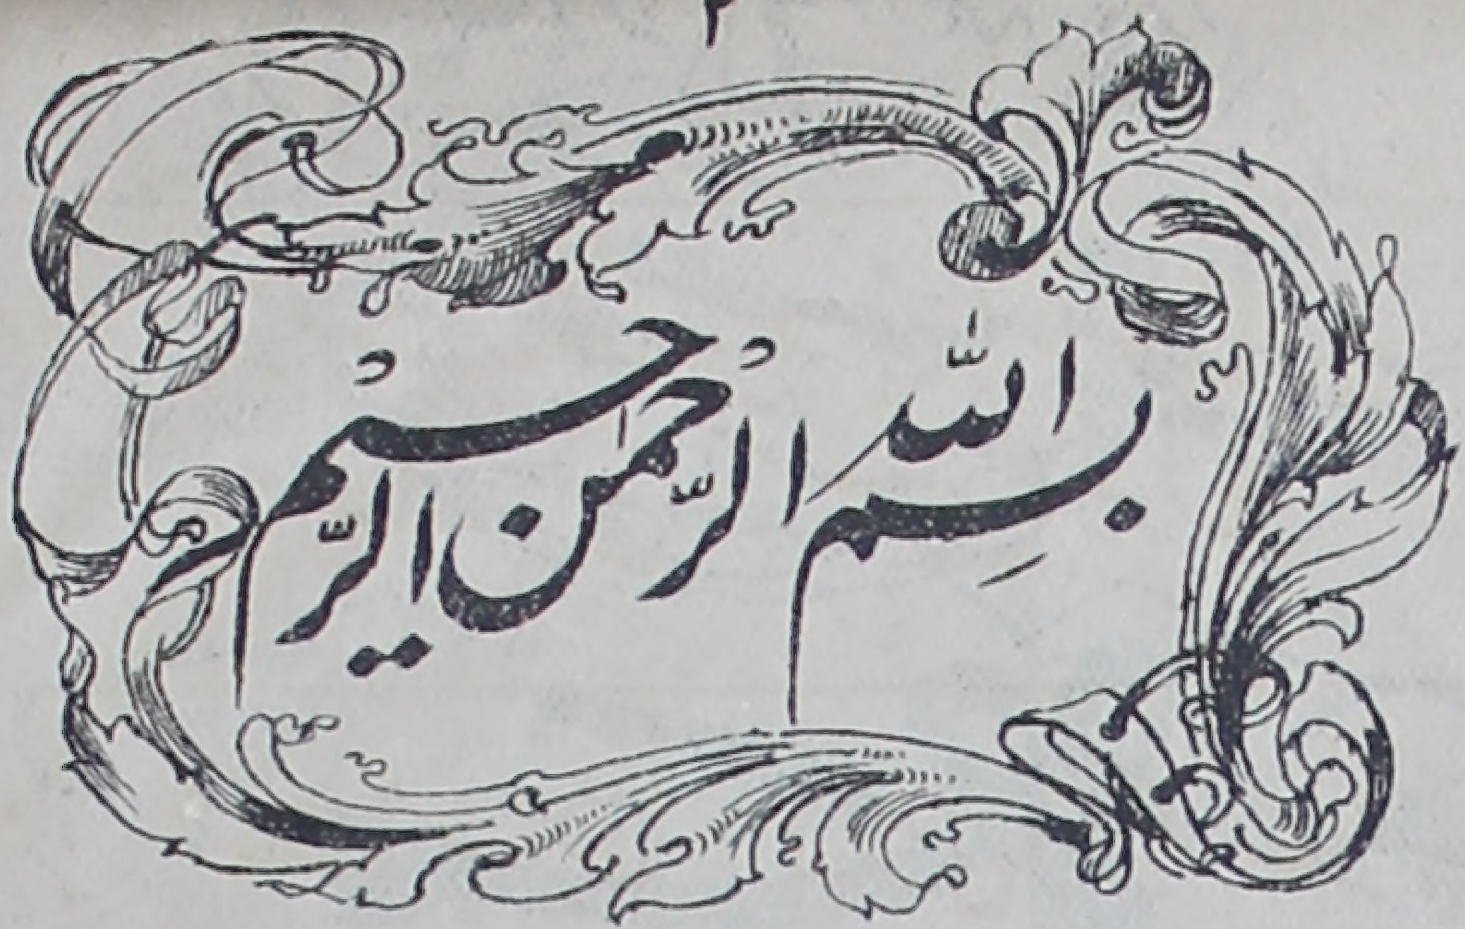 ٢
بِسمِ اللّٰه الرّحمٰن الرّحیم